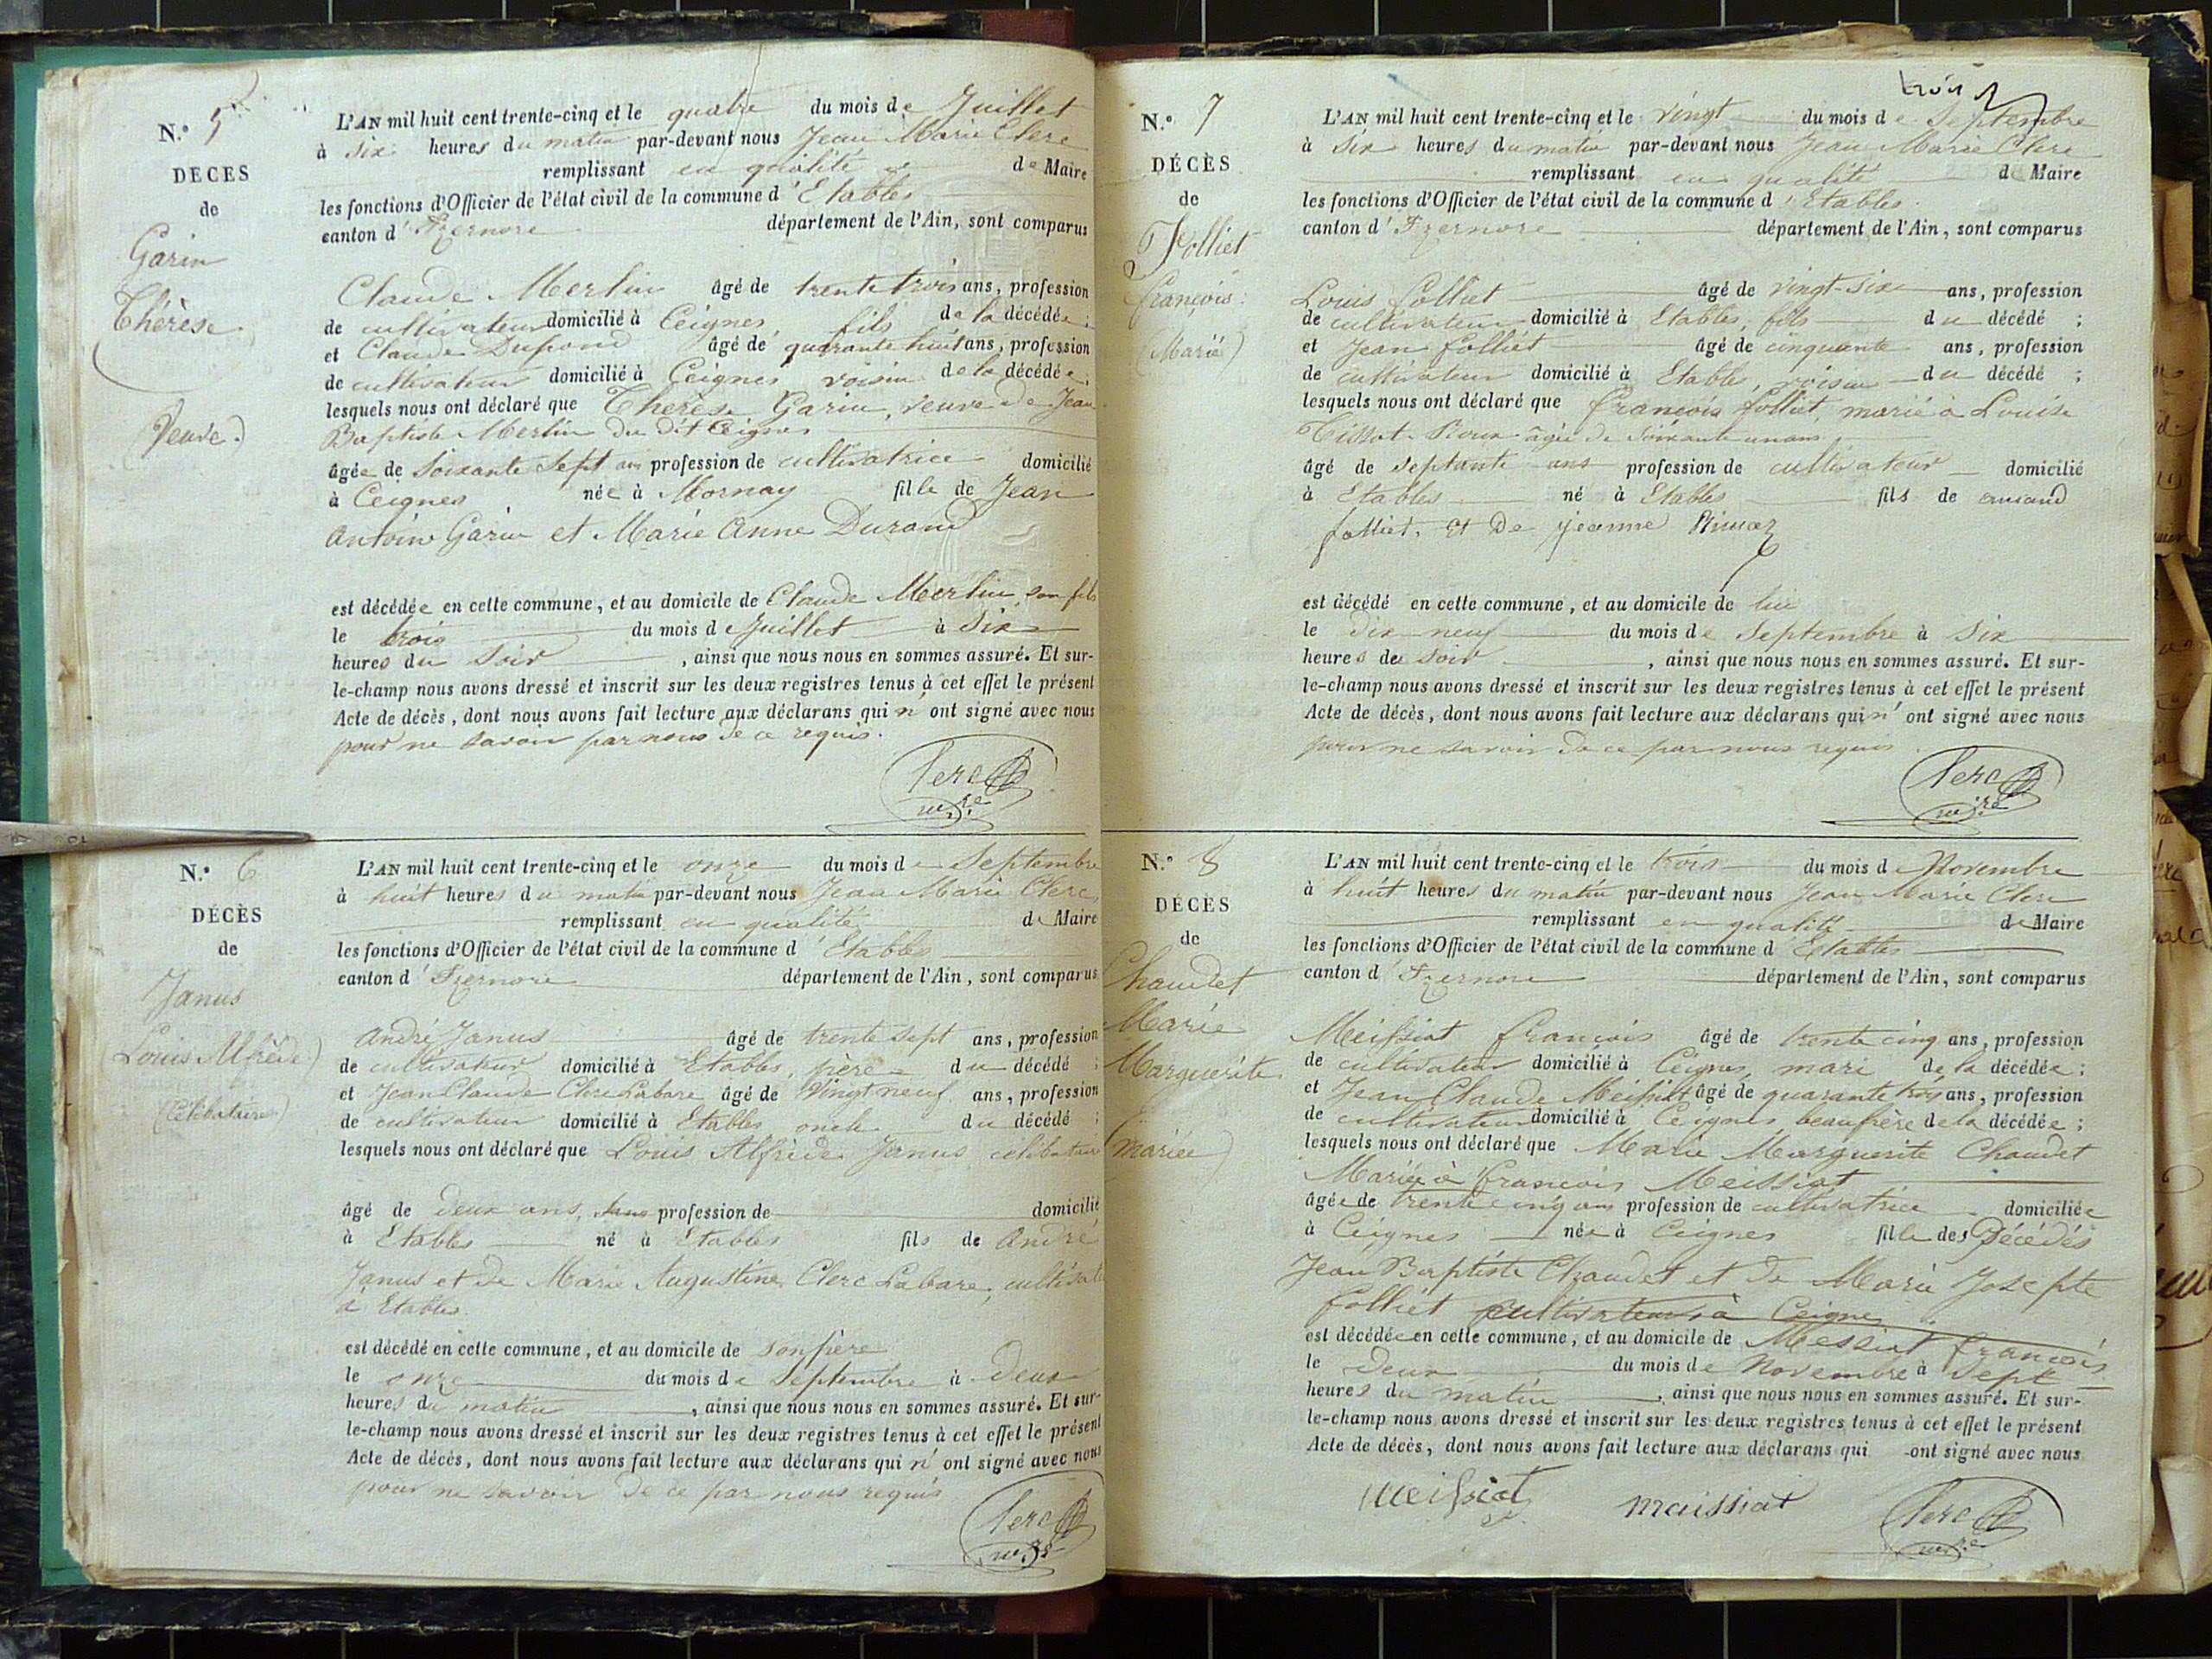 N.º 5
DÉCÈS
de
Garin
Thérèse
Veuve
L'AN mil huit cent trente-cinq et le quatre du mois de Juillet
à six heures du matin par-devant nous Jean Marie Clerc
remplissant en qualité de Maire
les fonctions d'Officier de l'état civil de la commune d'Etables
canton d'Izernore département de l'Ain, sont comparus
Claude Merlin âgé de trente trois ans, profession
de cultivateur domicilié à Ceignes, fils de la décédée;
et Claude Dupond âgé de quarante huit ans, profession
de cultivateur domicilié à Ceignes voisin de la décédée;
lesquels nous ont déclaré que Thérèse Garin, veuve de Jean
Baptiste Merlin du dit Ceignes
âgée de soixante sept ans profession de cultivatrice domicilié
à Ceignes née à Mornay fille de Jean
Antoine Garin et Marie Anne Durand
est décédée en cette commune, et au domicile de Claude Merlin, son fils
le trois du mois de Juillet à six
heures du soir, ainsi que nous nous en sommes assuré. Et sur-
le-champ nous avons dressé et inscrit sur les deux registres tenus à cet effet le présent
Acte de décès, dont nous avons fait lecture aux déclarans qui n'ont signé avec nous
pour ne savoir par nous de ce requis.
Clerc
m.re
N.º 6
DÉCÈS
de
Janus
Louis Alfrède
(Célibataire)
L'AN mil huit cent trente-cinq et le onze du mois de Septembre
à huit heures du matin par-devant nous Jean Marie Clerc,
remplissant en qualité de Maire
les fonctions d'Officier de l'état civil de la commune d'Etables
canton d'Izernore département de l'Ain, sont comparus
André Janus âgé de trente sept ans, profession
de cultivateur domicilié à Etables, père du décédé;
et Jean Claude Clerc Labare âgé de vingt neuf ans, profession
de cultivateur domicilié à Etables oncle du décédé;
lesquels nous ont déclaré que Louis Alfrède Janus célibataire
âgé de deux ans, sans profession de domicilié
à Etables né à Etables fils de André
Janus et de Marie Augustine Clerc Labare, cultivat
à Etables
est décédé en cette commune, et au domicile de son père
le onze du mois de Septembre à deux
heures du matin, ainsi que nous nous en sommes assuré. Et sur-
le-champ nous avons dressé et inscrit sur les deux registres tenus à cet effet le présent
Acte de décès, dont nous avons fait lecture aux déclarans qui n'ont signé avec nous
pour ne savoir de ce par nous requis
Clerc
m.re
trois
N.º 7
DÉCÈS
de
Folliet
François
(Marié)
L'AN mil huit cent trente-cinq et le vingt du mois de Septembre
à six heures du matin par-devant nous Jean Marie Clerc
remplissant en qualité de Maire
les fonctions d'Officier de l'état civil de la commune d'Etables
canton d'Izernore département de l'Ain, sont comparus
Louis Folliet âgé de vingt-six ans, profession
de cultivateur domicilié à Etables, fils du décédé;
et Jean Folliet âgé de cinquante ans, profession
de cultivateur domicilié à Etables, voisin du décédé;
lesquels nous ont déclaré que François Folliet, marié à Louise
Tissot âgée de soixante un ans
âgé de septante ans profession de cultivateur domicilié
à Etables né à Etables fils de
folliet, et de jeanne
est décédé en cette commune, et au domicile de lui
le dix neuf du mois de Septembre à six
heures du soir, ainsi que nous nous en sommes assuré. Et sur-
le-champ nous avons dressé et inscrit sur les deux registres tenus à cet effet le présent
Acte de décès, dont nous avons fait lecture aux déclarans qui n'ont signé avec nous
pour ne savoir de ce par nous requis
Clerc
m.re
N.º 8
DÉCÈS
de
Chaudet
Marie
Marguerite
mariée
L'AN mil huit cent trente-cinq et le trois du mois de Novembre
à huit heures du matin par-devant nous Jean Marie Clerc
remplissant en qualité de Maire
les fonctions d'Officier de l'état civil de la commune d'Etables
canton d'Izernore département de l'Ain, sont comparus
Meissiat François âgé de trente cinq ans, profession
de cultivateur domicilié à Ceignes, mari de la décédée;
et Jean Claude Meissiat âgé de quarante trois ans, profession
de cultivateur domicilié à Ceignes, beaufrère de la décédée;
lesquels nous ont déclaré que Marie Marguerite Chaudet
Mariée à François Meissiat
âgée de trente cinq ans profession de cultivatrice domiciliée
à Ceignes née à Ceignes fille des Décédés
Jean Baptiste Chaudet et de Marie Josepte
Folliet cultivateurs à Ceignes
est décédée en cette commune, et au domicile de Messiat François
le deux du mois de Novembre à sept
heures du matin, ainsi que nous nous en sommes assuré. Et sur-
le-champ nous avons dressé et inscrit sur les deux registres tenus à cet effet le présent
Acte de décès, dont nous avons fait lecture aux déclarans qui ont signé avec nous
Meissiat maissiat Clerc
m.re